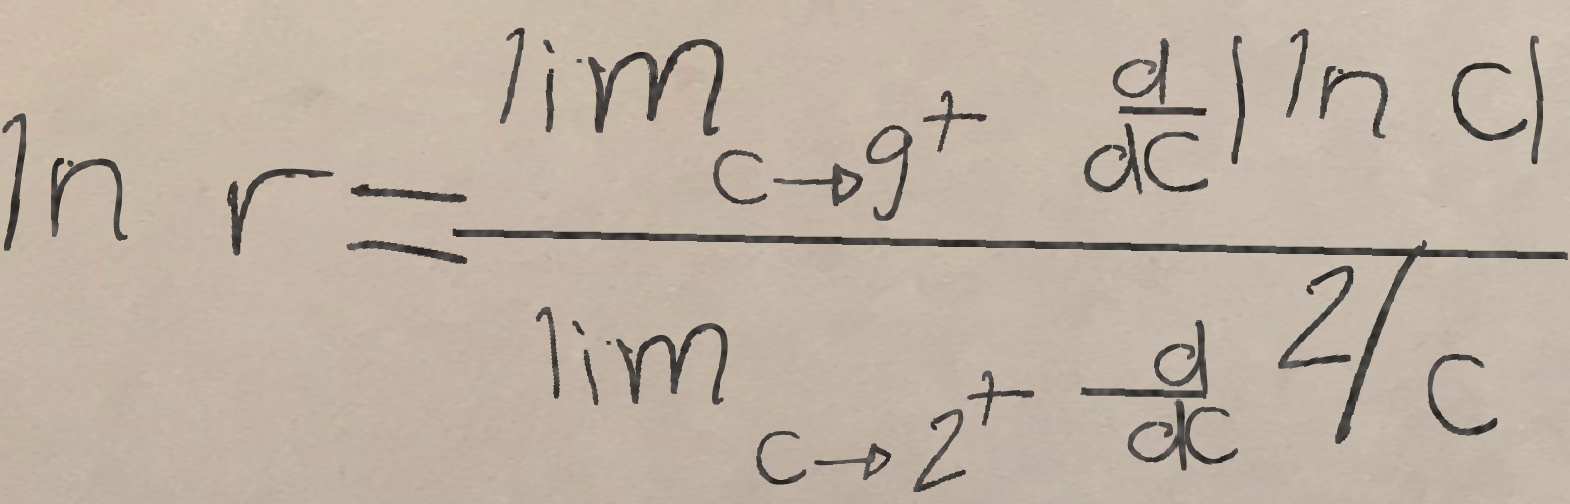 \ln r = \frac{\lim_{c \to 9^+} \frac{d}{dc} |\ln c|}{\lim_{c \to 2^+} \frac{d}{dc} 2/c}